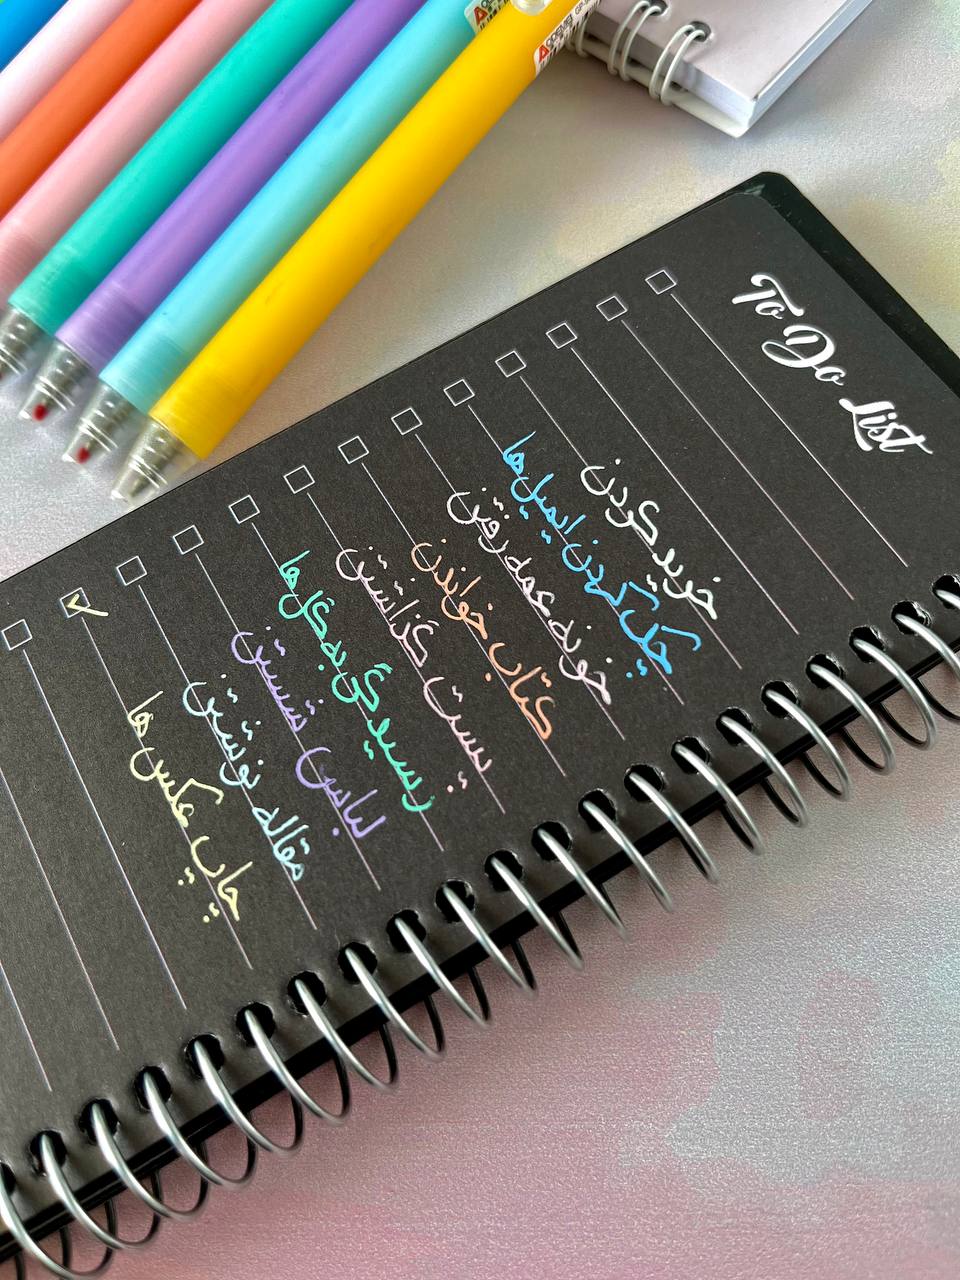 To Do List
خرید کردن
چک کردن ایمیل ها
خونه عمه رفتن
کتاب خواندن
پست گذاشتن
رسیدگی به گل ها
لباس شستن
مقاله نوشتن
چاپ عکس ها